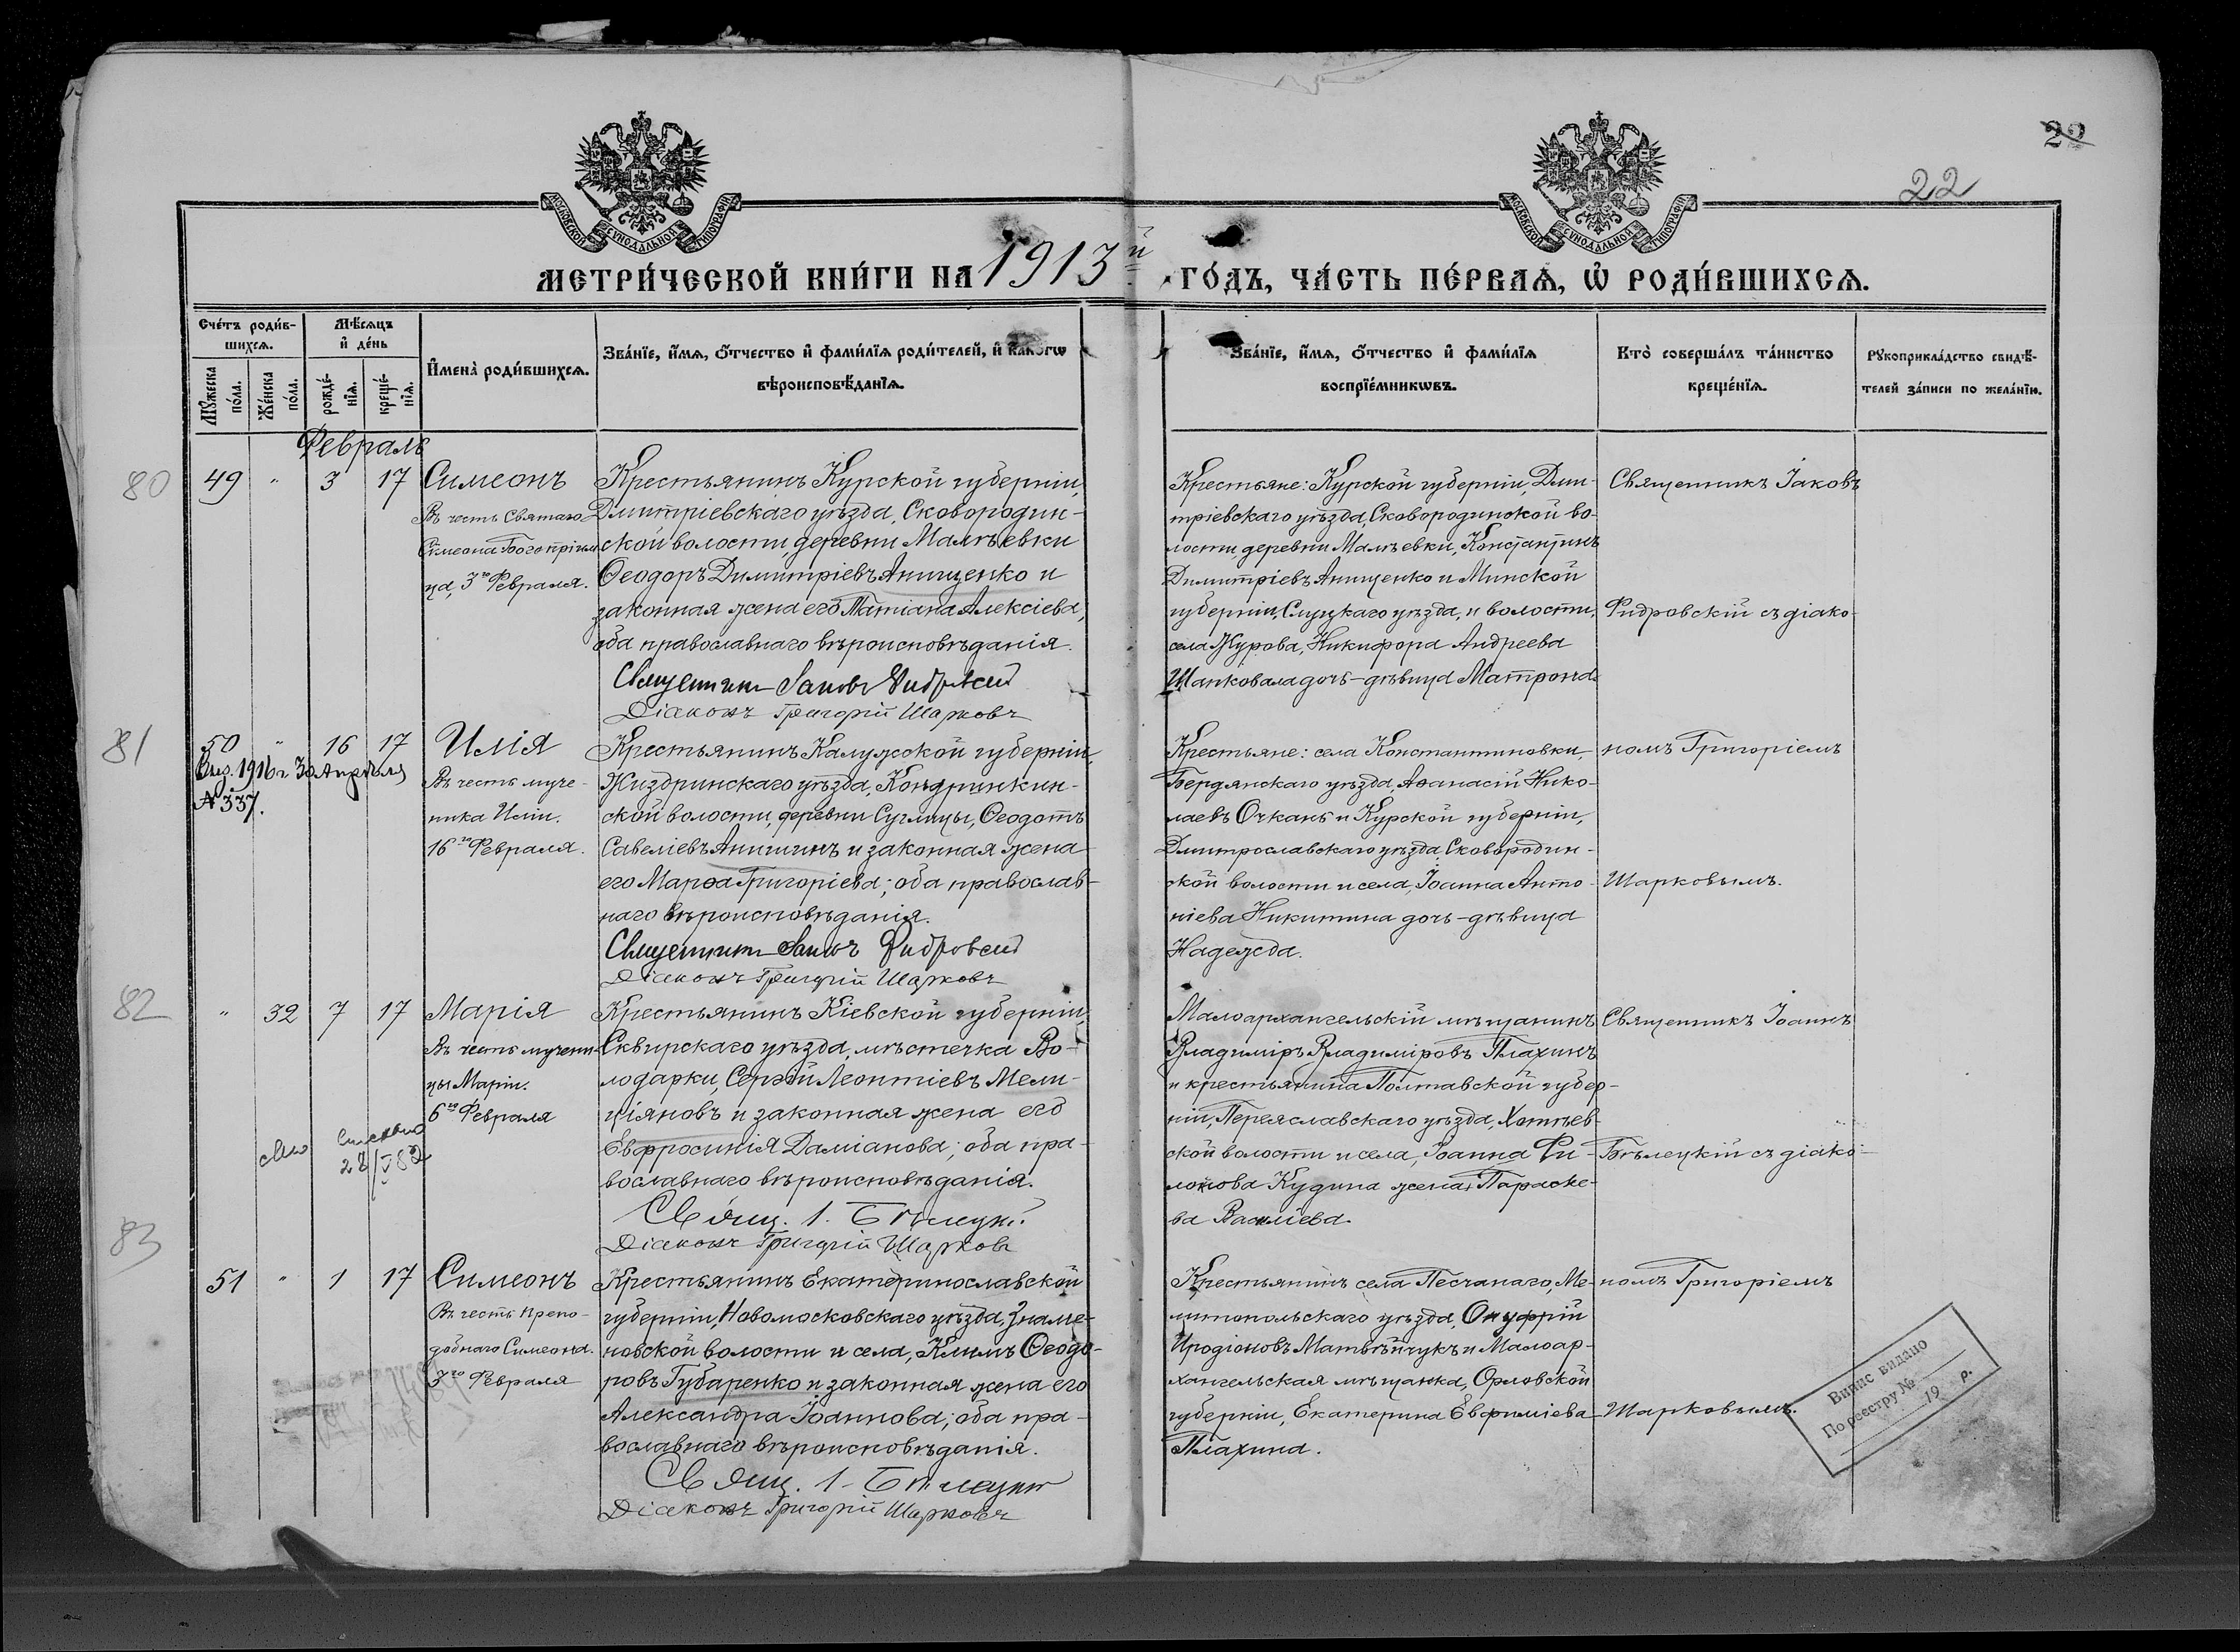 22
22
МОСКОВСКОЙ СѴНОДАЛЬНОЙ ТИПОГРАФІИ
МОСКОВСКОЙ СѴНОДАЛЬНОЙ ТИПОГРАФІИ
МЕТРИ́ЧЕСКОЙ КНИ́ГИ НА 1913й ГО́ДЪ, ЧА́СТЬ ПЕ́РВАѦ, Ѽ РОДИ́ВШИХСѦ.
Сче́тъ роди́в-
шихсѧ.
Мꙋжеска по́ла.
Же́нска по́ла.
Мѣ́сѧцъ
и҆ де́нь
рожде́-нїѧ.
креще́-нїѧ.
И҆мена̀ роди́вшихсѧ.
Зва́нїе, и҆́мѧ, ѻ҆́тчество и҆ фами́лїѧ роди́телей, и҆ како́гѡ
вѣроисповѣ́данїѧ.
Зва́нїе, и҆́мѧ, ѻ҆́тчество и҆ фами́лїѧ
воспрїе́мникѡвъ.
Кто̀ соверша́лъ та́инство
креще́нїѧ.
Рꙋкоприкла́дство свидѣ́-
телей за́писи по жела́нїю.
Февраль
80
49 " 3 17
Симеонъ
Въ честь Святаго
Симеона Богопріим
ца, 3го Февраля.
Крестьянинъ Курской губерніи,
Дмитріевскаго уѣзда, Сковородин-
ской волости, деревни Малѣевки
Ѳеодоръ Димитріевъ Анищенко и
законная жена его Татіана Алексіева,
оба православнаго вѣроисповѣданія.
Священникъ Іаковъ Фидровскій
Діаконъ Григорій Шарковъ
Крестьяне: Курской губерніи, Дми-
тріевскаго уѣзда, Сковородинской во-
лости, деревни Малѣевки, Константинъ
Димитріевъ Анищенко и Минской
губерніи, Слуцкаго уѣзда, и волости,
села Журова, Никифора Андреева
Шапковала дочь-дѣвица Матрона
Священникъ Іаковъ
Фидровскій съ діако-
81
50 " 16 17
Выд. 1916 г. 30 Апрѣля
№ 337.
Илія
Въ честь муче-
ника Иліи.
16го Февраля.
Крестьянинъ Калужской губерніи,
Жиздринскаго уѣзда, Кондрыкин-
ской волости, деревни Суглицы, Ѳеодотъ
Савеліевъ Анишинъ и законная жена
его Марѳа Григоріева; оба православ-
наго вѣроисповѣданія.
Священникъ Іаковъ Фидровскій
Діаконъ Григорій Шарковъ
Крестьяне: села Константиновки,
Бердянскаго уѣзда, Аѳанасій Нико-
лаевъ Очкань и Курской губерніи,
Дмитрославскаго уѣзда, Сковородин-
ской волости и села, Іоанна Анто-
ніева Никитина дочь-дѣвица
Надежда.
номъ Григоріемъ
Шарковымъ.
82
" 32 7 17
28/V 82
Марія
Въ честь мучени-
цы Маріи.
6го Февраля
Крестьянинъ Кіевской губерніи,
Сквирскаго уѣзда, мѣстечка Во-
лодарки, Сергій Леонтіевъ Мели-
ціяновъ и законная жена его
Евфросинія Даміанова; оба пра-
вославнаго вѣроисповѣданія.
Свящ. І. Бѣлецкій
Діаконъ Григорій Шарковъ
Малоархангельскій мѣщанинъ
Владиміръ Владиміровъ Плахинъ
и крестьянина Полтавской губер-
ніи, Переяславскаго уѣзда, Хоцьев-
ской волости и села, Іоанна Фи-
лонова Кудина жена, Параске-
ва Василіева.
Священникъ Іоаннъ
Бѣлецкій съ діако-
83
51 " 1 17
Симеонъ
Въ честь Препо-
добнаго Симеона.
3го Февраля
Крестьянинъ Екатеринославской
губерніи, Новомосковскаго уѣзда, Знаме-
новской волости и села, Климъ Ѳеодо-
ровъ Губаренко и законная жена его
Александра Іоаннова; оба пра-
вославнаго вѣроисповѣданія.
Свящ. І. Бѣлецкій
Діаконъ Григорій Шарковъ
Крестьянинъ села Песчанаго, Ме-
литопольскаго уѣзда, Онуфрій
Иродіоновъ Матвѣйчукъ и Малоар-
хангельская мѣщанка, Орловской
губерніи, Екатерина Евфиміева
Плахина.
номъ Григоріемъ
Шарковымъ.
Випис видано
По реєстру №
19 р.